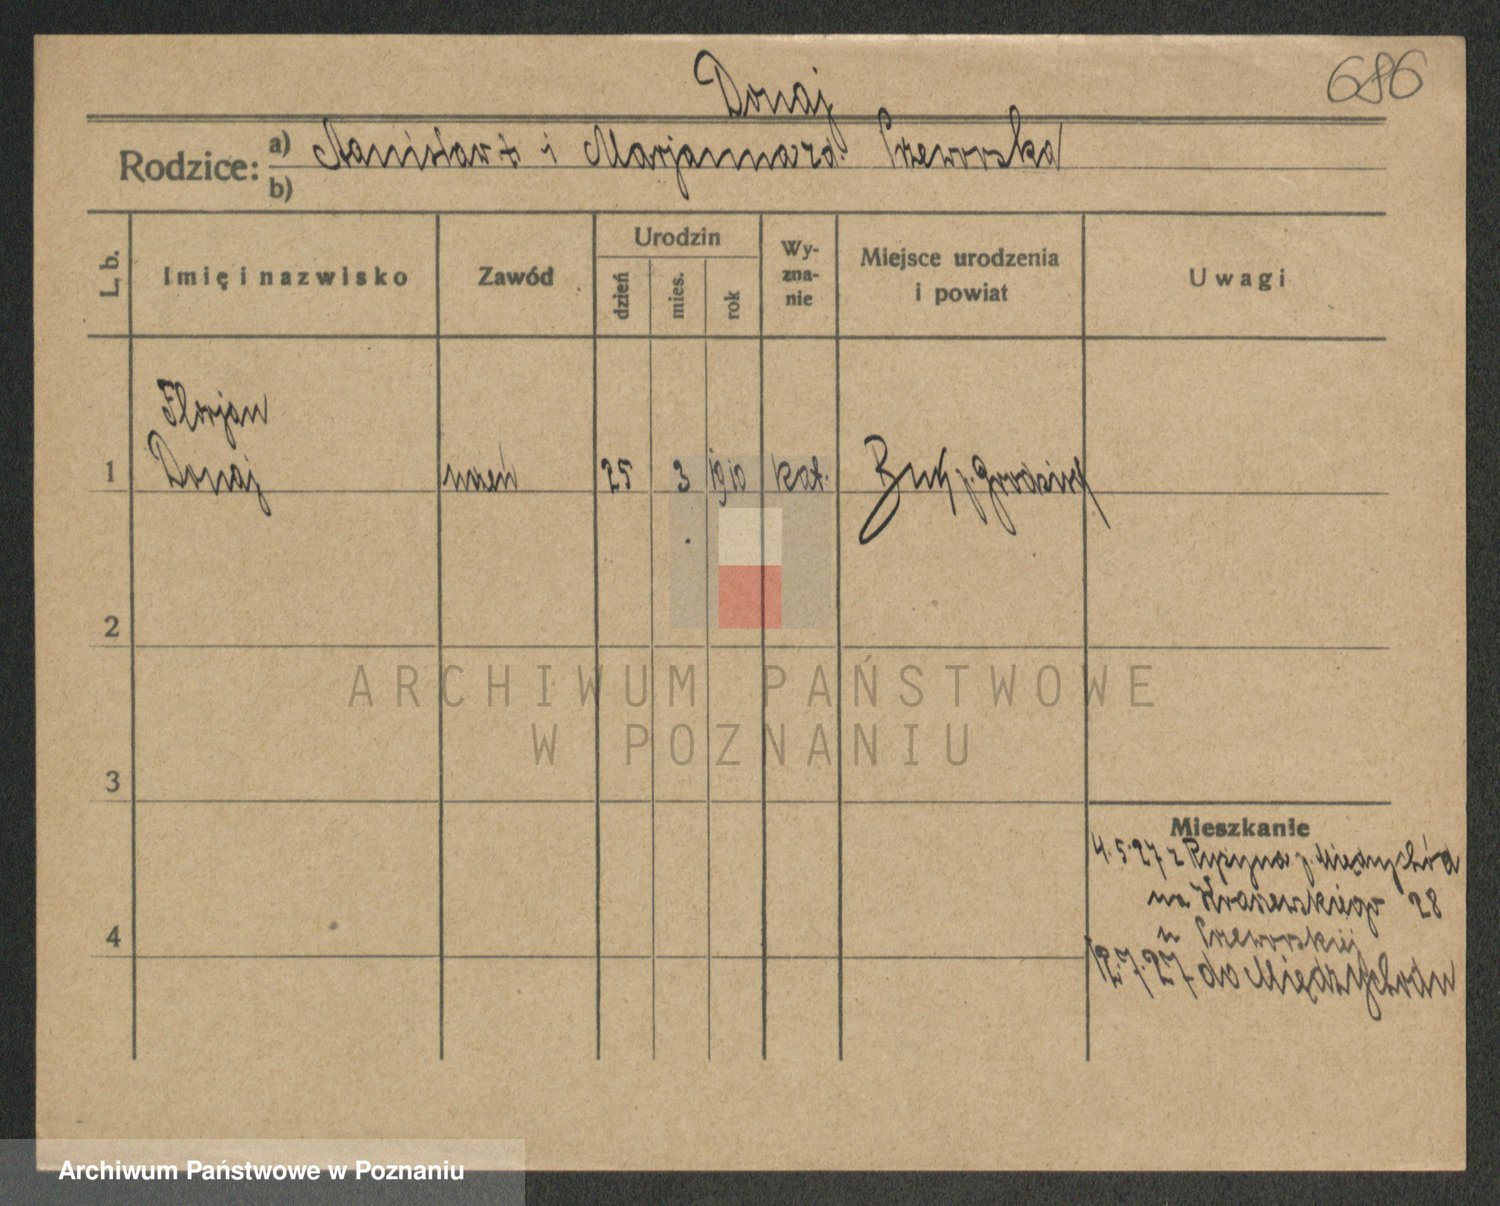 686
Donaj
Rodzice: a) Stanisław † i Marjanna zd. Przeworska
b)
L. b.
Imię i nazwisko
Zawód
Urodzin
dzień
mies.
rok
Wy-
zna-
nie
Miejsce urodzenia
i powiat
Uwagi
Florjan
1 Donaj uczeń 25 3 1910 kat. Buk p. Grodzisk
2
3
4
ARCHIWUM PAŃSTWOWE
W POZNANIU
Mieszkanie
4.5.27 z p. Międzychód
na Kraszewskiego 28
u Przeworskiej
12.7.27 do Międzychodu
Archiwum Państwowe w Poznaniu